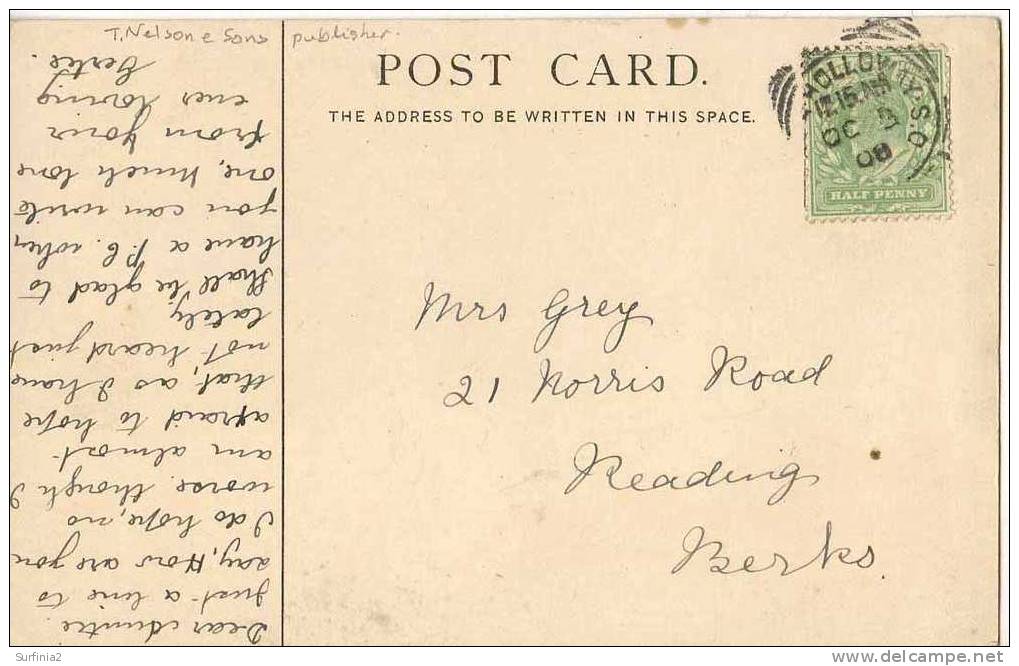 T. Nelson e Sons publisher.
POST CARD.
THE ADDRESS TO BE WRITTEN IN THIS SPACE.
HOLLOWAY. S.O
12.15 AM
OC 3
08
HALF PENNY
Mrs Grey
21 Norris Road
Reading
Berks.
Dear Auntie.
Just a line to
say, How are you
I do hope, no
worse. though I
am almost
afraid to hope
that, as I have
not heard just
lately,
Shall be glad to
have a P.C. when
you can write
one, Much love
from your
ever loving
Bertie.
Surfinia2
delcampe.net